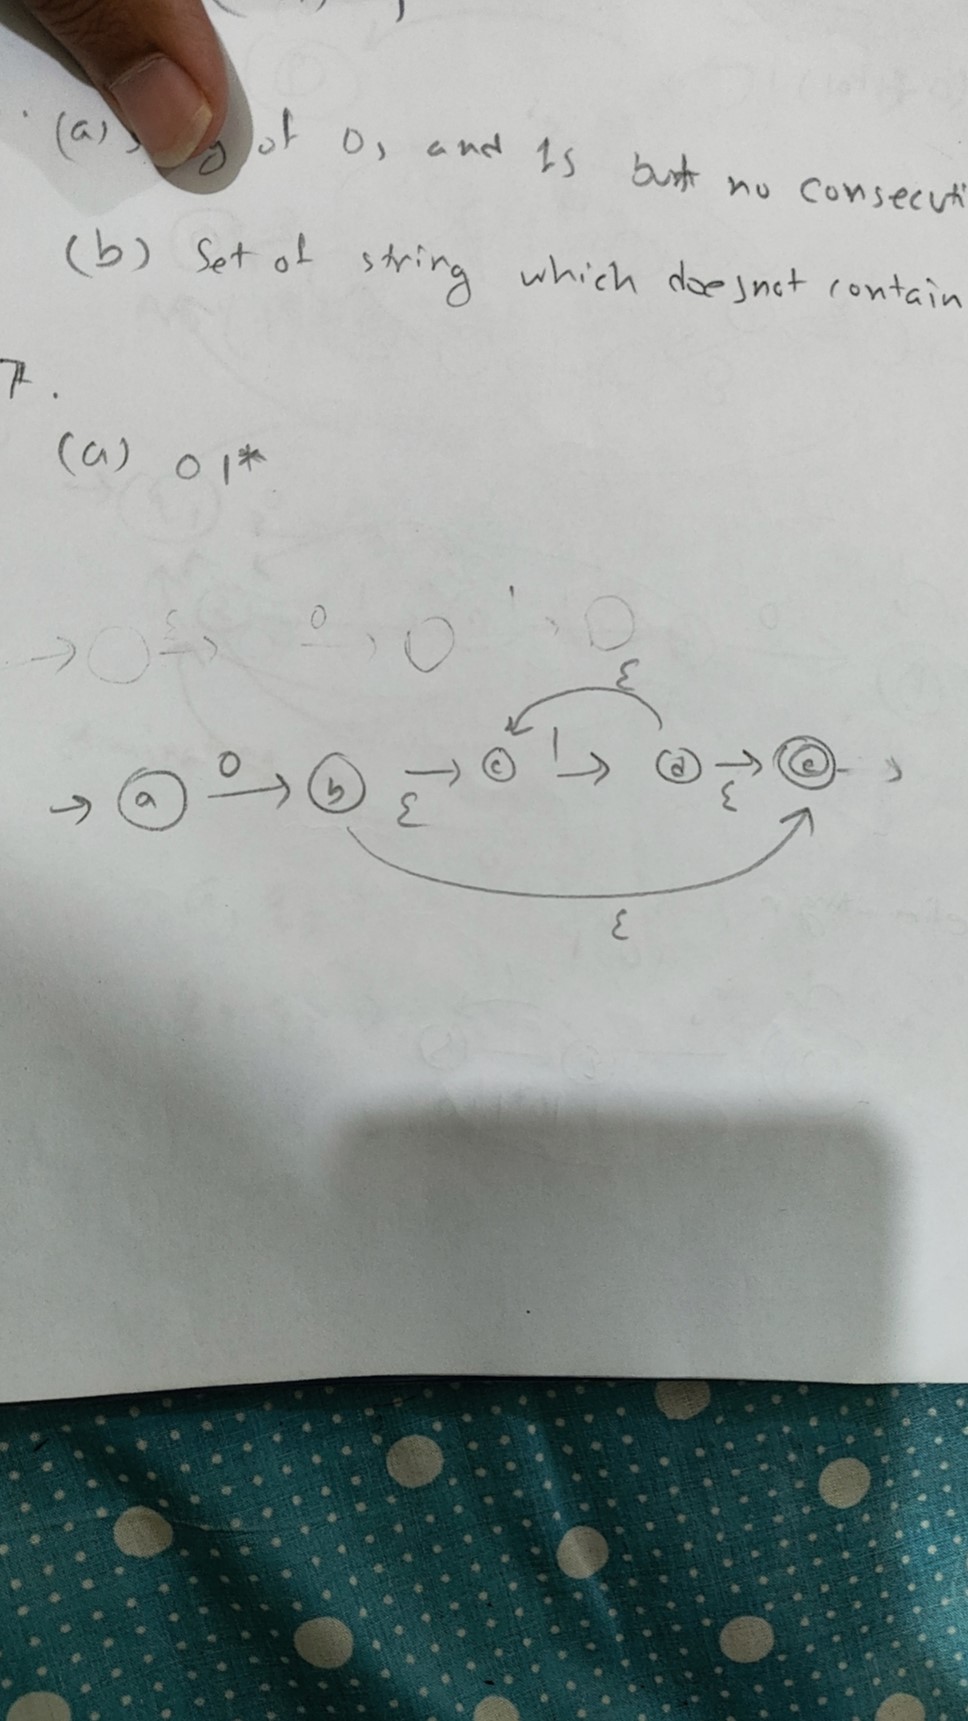 (a) of 0s and 1s but no consecuti
(b) Set of string which doesnot contain
7.
(a) 01*
ε 0 1
ε
0 1
a b c d e
ε ε
ε